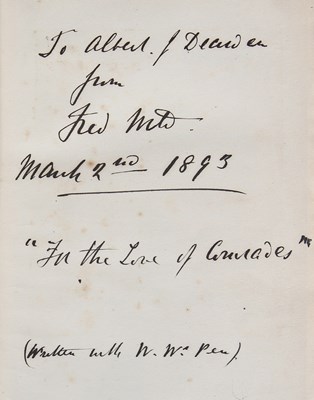 To Albert. J Dearden
from
Fred Wild.
March 2nd 1893
"For the Love of Comrades"
(Written with W. W's Pen).